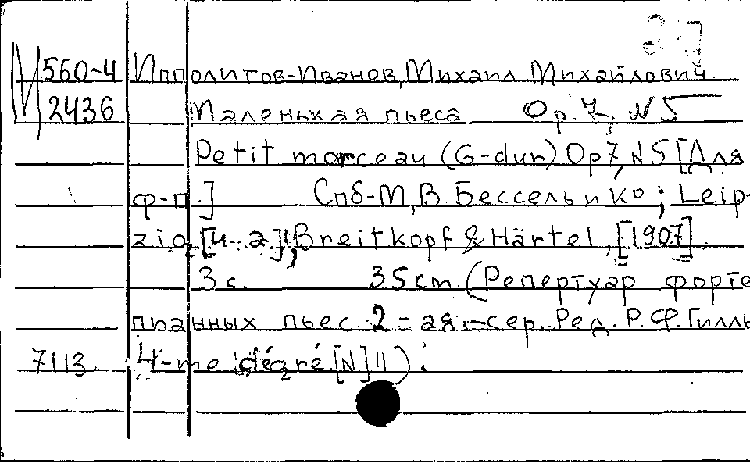 М 560-4 Ипполитов-Иванов, Михаил Михайлович
2436 Маленькая пьеса Ор. 7, N 5
Petit morceau (G-dur) Op 7, N 5 [Для
ф-п.] Спб-М, В. Бессель и Ко; Leip-
zig [и др.], Breitkopf & Härtel, [1907].
3 с. 35 cm. (Репертуар форте
пианных пьес 2-ая сер. Ред. Р. Ф. Гилль
7113. 4-me degré [N] 11).